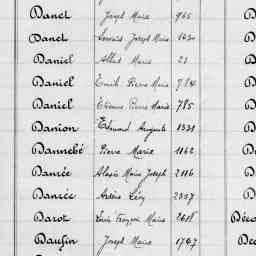 Danet Joseph Marie 965
Danet Joseph Marie 1430
Daniel Albert Marie 23
Daniel Emile Pierre Marie 784
Daniel Etienne Pierre Marie 785
Danion Edmond Auguste 1331
Dannebé Pierre Marie 1162
Danrée Alexis Marie Joseph 2116
Danrée Arsène Léon 2337
Darot Louis François Marie 2618
Daufin Joseph Marie 1747